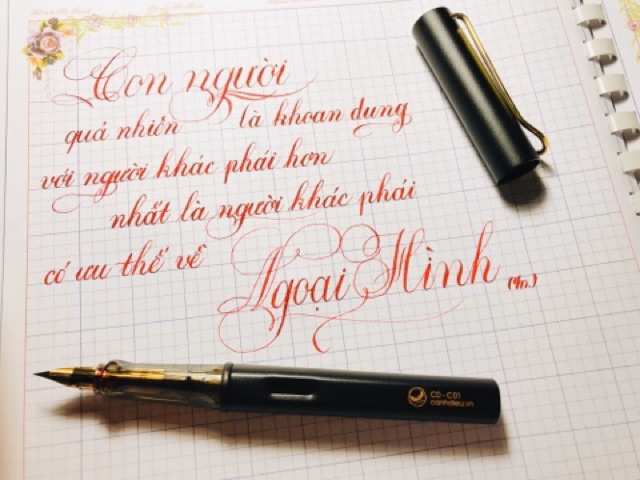 Con người
quả nhiên là khoan dung
với người khác phái hơn
nhất là người khác phái
có ưu thế về
Ngoại Hình (Sn.)
CD-C01
canhdieu.vn